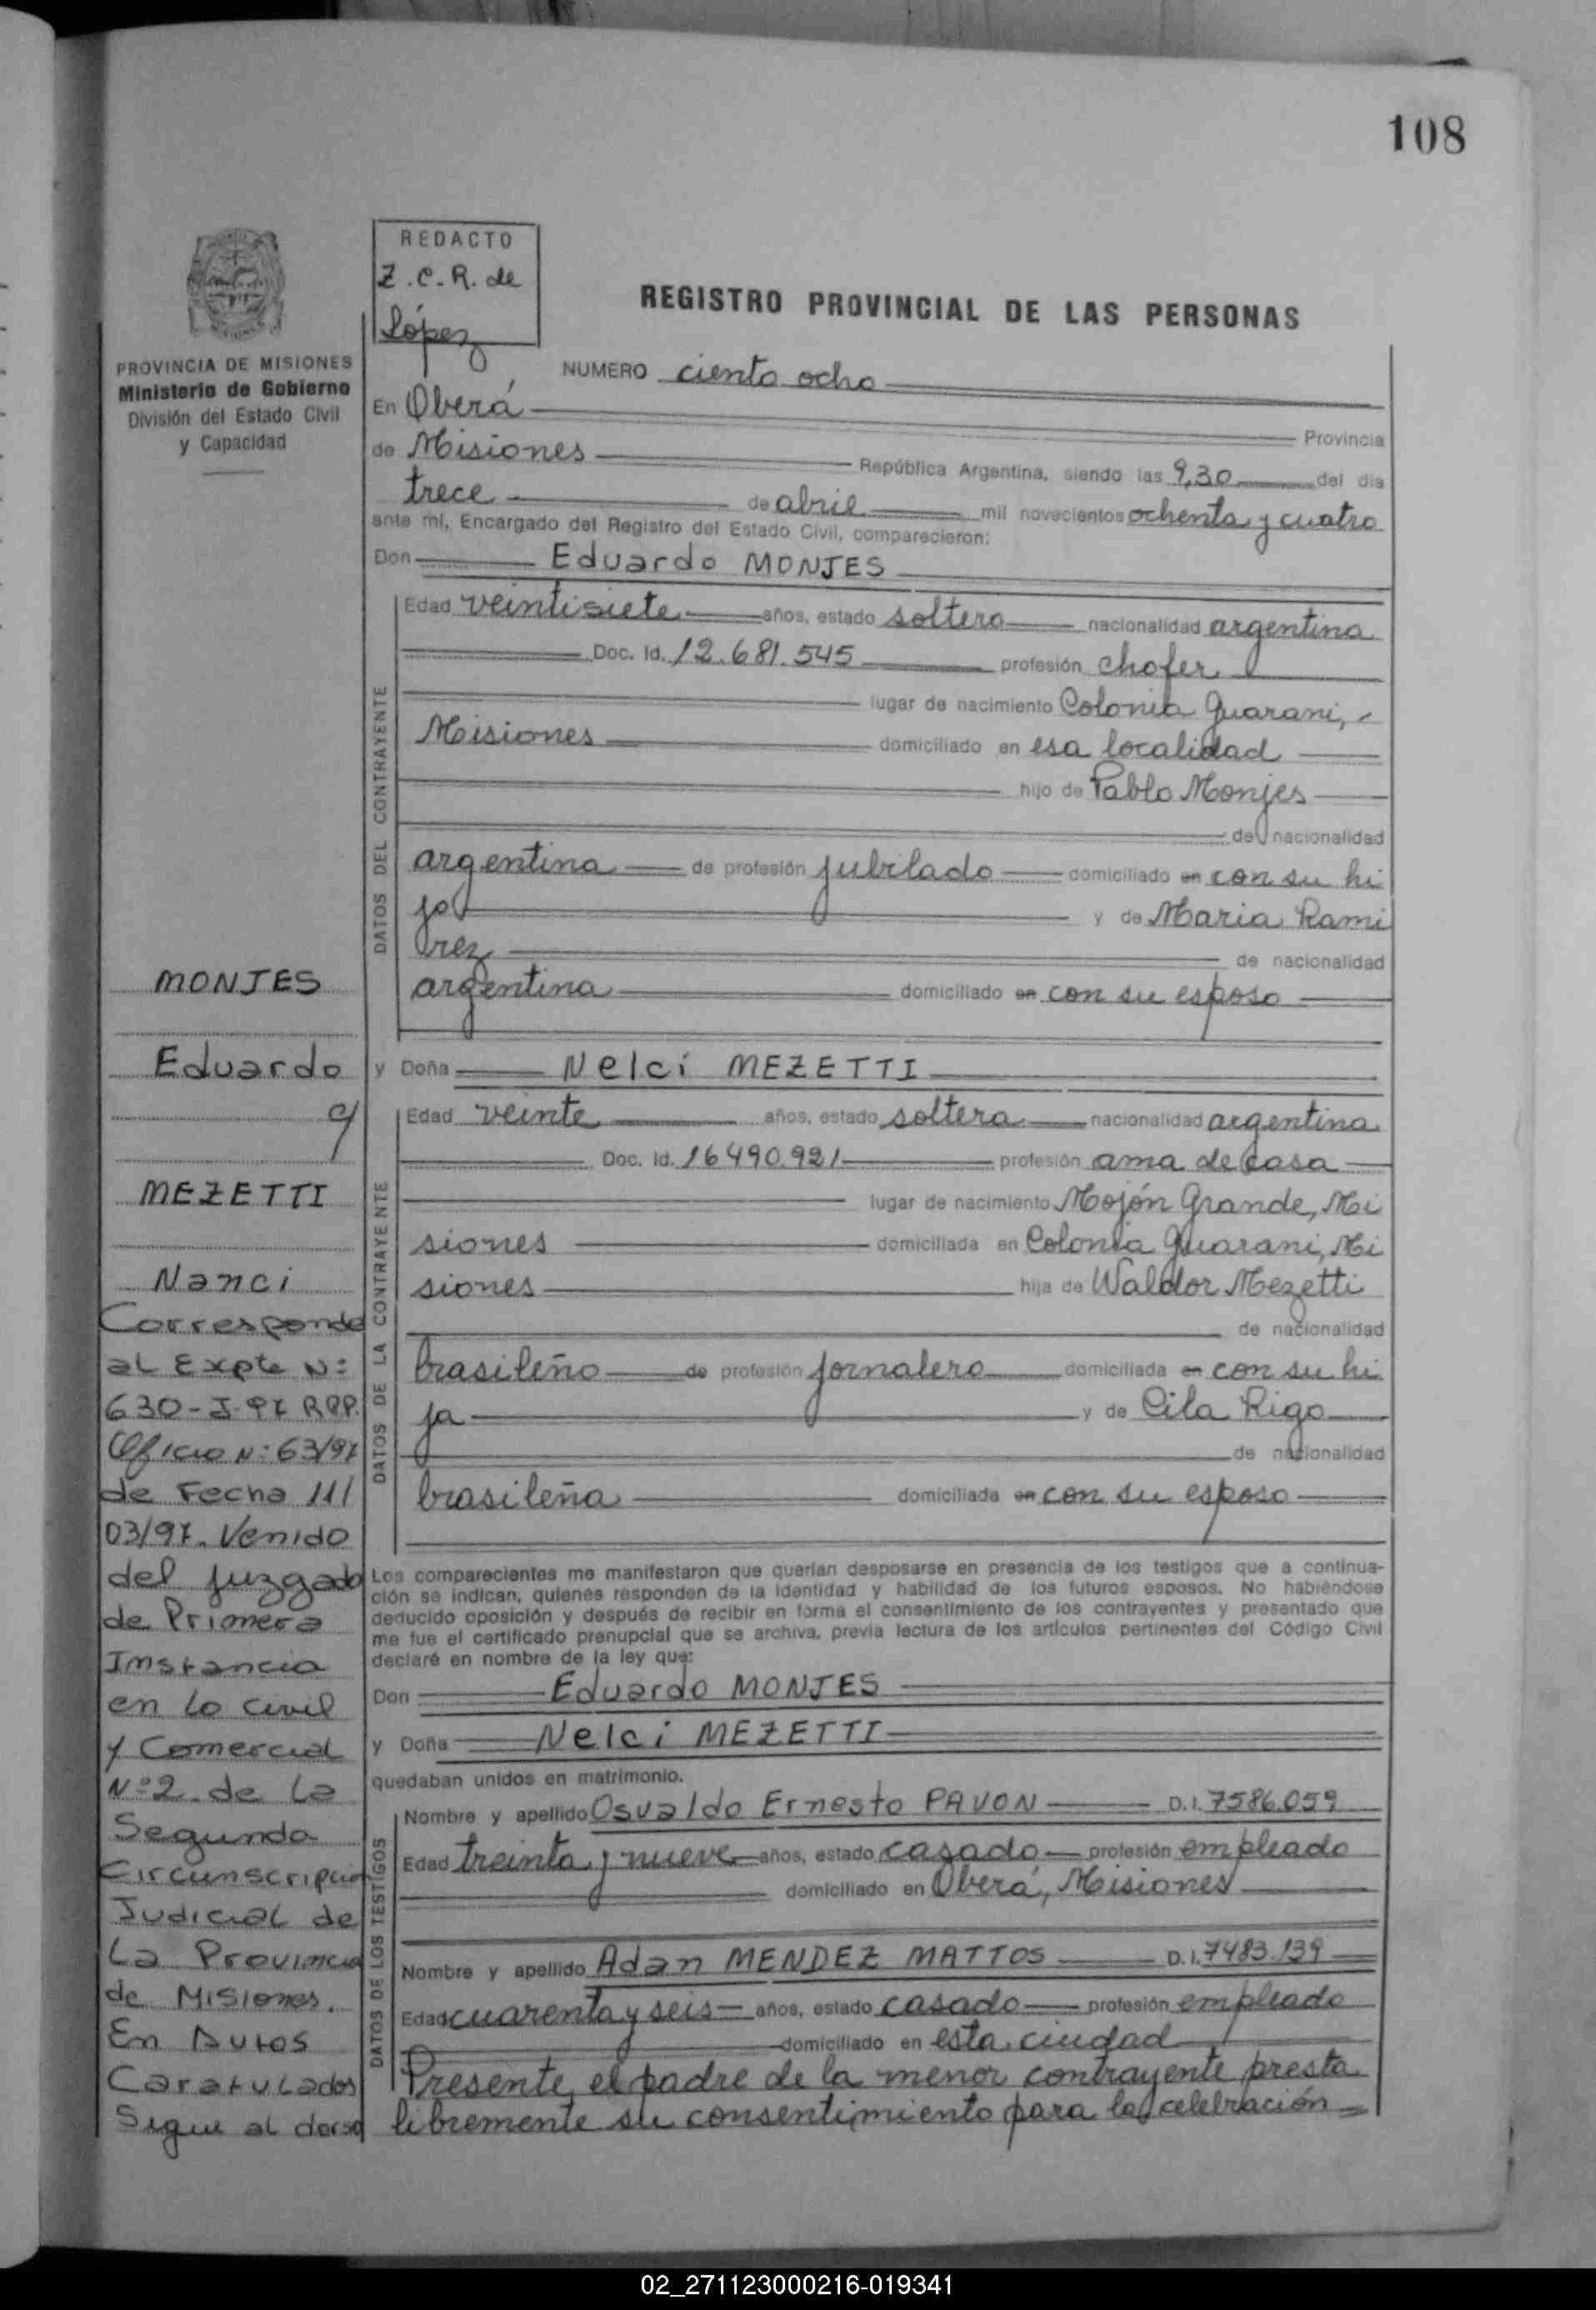 108
REDACTO
Z.C.R. de
López
REGISTRO PROVINCIAL DE LAS PERSONAS
PROVINCIA DE MISIONES
Ministerio de Gobierno
División del Estado Civil
y Capacidad
NUMERO ciento ocho
En Oberá
Provincia
de Misiones República Argentina, siendo las 9,30 del día
trece de abril mil novecientos ochenta y cuatro
ante mí, Encargado del Registro del Estado Civil, comparecieron:
Don Eduardo MONJES
DATOS DEL CONTRAYENTE
Edad veintisiete años, estado soltero nacionalidad argentina
Doc. Id. 12.681.545 profesión chofer
lugar de nacimiento Colonia Guarani,
Misiones domiciliado en esa localidad
hijo de Pablo Monjes
de nacionalidad
argentina de profesión jubilado domiciliado en con su hi
jo y de Maria Rami
rez de nacionalidad
argentina domiciliado en con su esposo
y Doña Nelci MEZETTI
DATOS DE LA CONTRAYENTE
Edad veinte años, estado soltera nacionalidad argentina
Doc. Id. 16490.921 profesión ama de casa
lugar de nacimiento Mojón Grande, Mi
siones domiciliada en Colonia Guarani, Mi
siones hija de Waldor Mezetti
de nacionalidad
brasileño de profesión jornalero domiciliada en con su hi
ja y de Cila Rigo
de nacionalidad
brasileña domiciliada en con su esposo
Los comparecientes me manifestaron que querían desposarse en presencia de los testigos que a continua-
ción se indican, quienes responden de la identidad y habilidad de los futuros esposos. No habiéndose
deducido oposición y después de recibir en forma el consentimiento de los contrayentes y presentado que
me fue el certificado prenupcial que se archiva, previa lectura de los artículos pertinentes del Código Civil
declaré en nombre de la ley que:
Don Eduardo MONJES
y Doña Nelci MEZETTI
quedaban unidos en matrimonio.
DATOS DE LOS TESTIGOS
Nombre y apellido Osvaldo Ernesto PAVON D.I. 7586.059
Edad treinta y nueve años, estado casado profesión empleado
domiciliado en Oberá, Misiones
Nombre y apellido Adan MENDEZ MATTOS D.I. 7483.139
Edad cuarenta y seis años, estado casado profesión empleado
domiciliado en esta ciudad
Presente el padre de la menor contrayente presta
libremente su consentimiento para la celebración
MONJES
Eduardo
y
MEZETTI
Nanci
Corresponde
al Expte N:
630-J-97 RPP.
Oficio N: 63/97
de Fecha 11/
03/97. Venido
del juzgado
de Primera
Instancia
en lo civil
y Comercial
Nº 2 de La
Segunda
Circunscripcion
Judicial de
La Provincia
de Misiones.
En Autos
Caratulados
Sigue al dorso
02_271123000216-019341